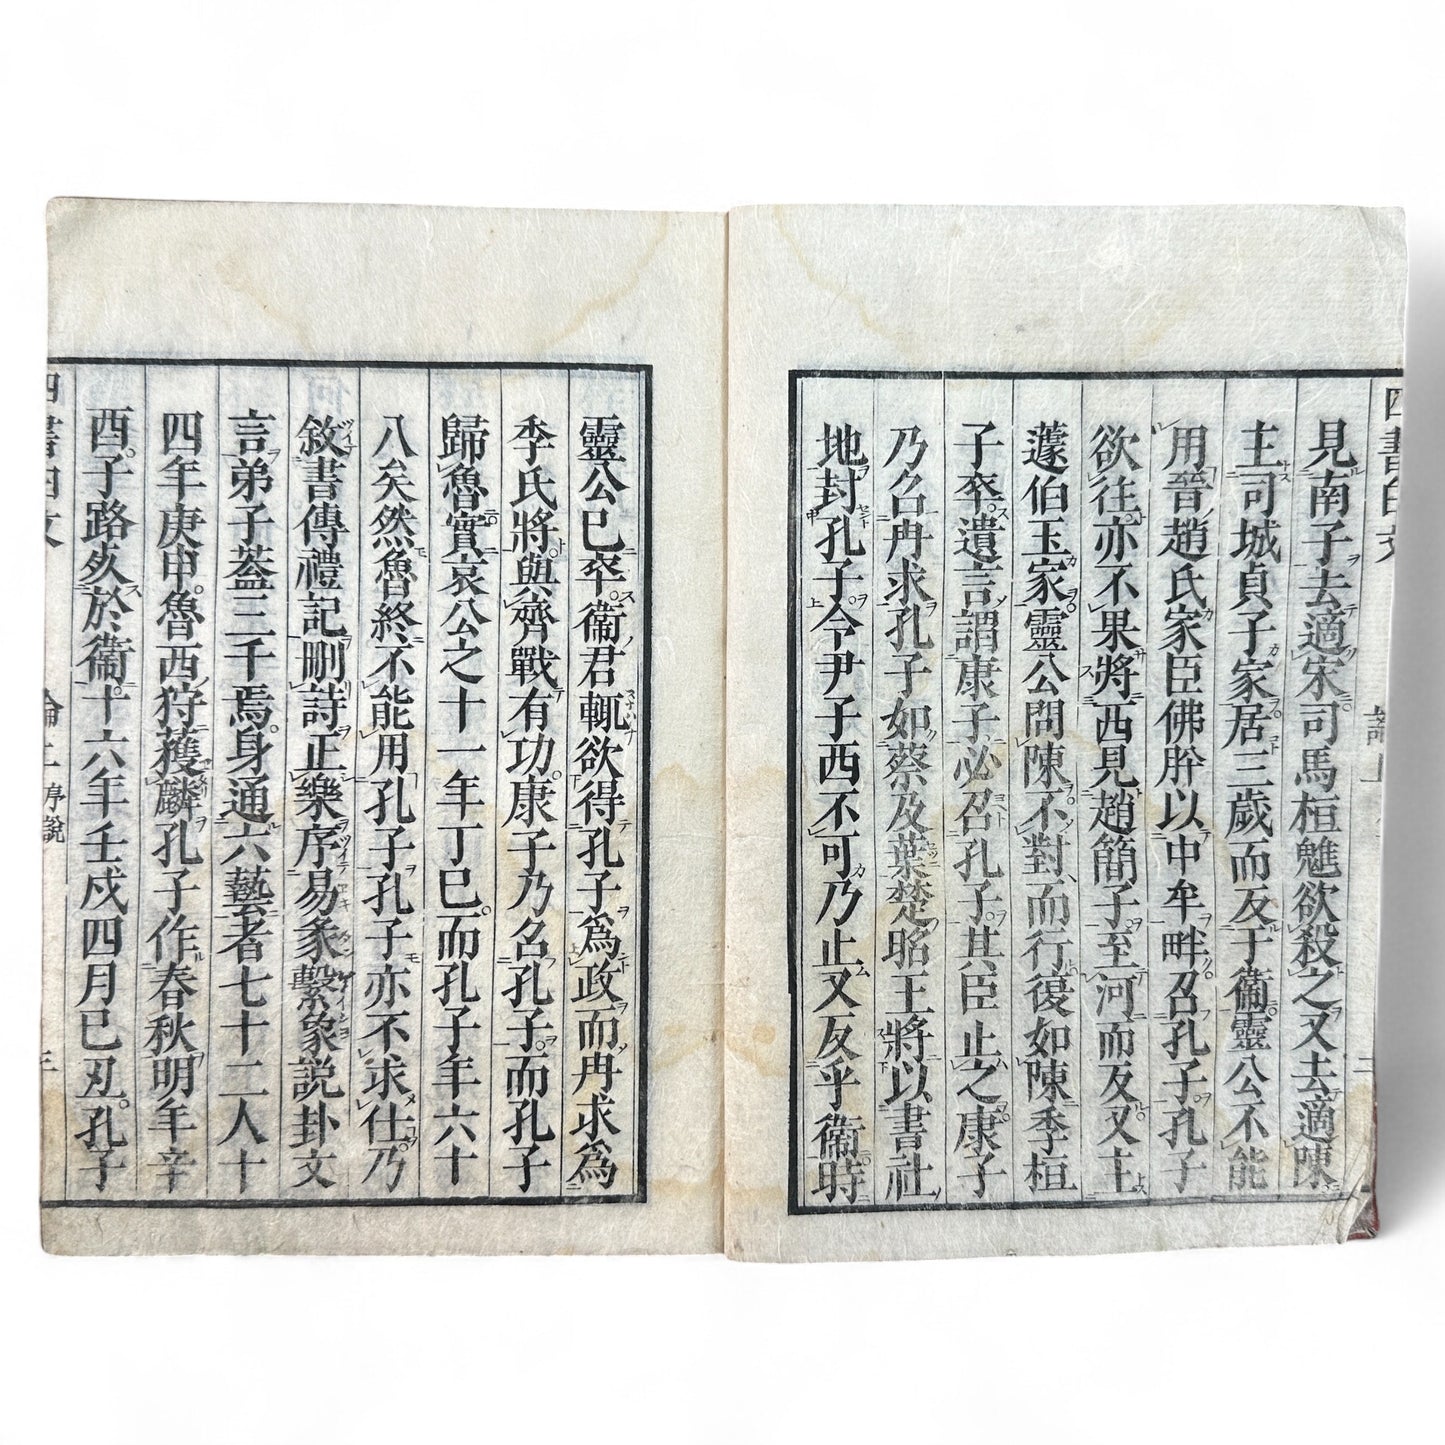 見南子去適宋司馬桓魋欲殺之又去適陳
主司城貞子家居三歲而反于衞靈公不能
用晉趙氏家臣佛肸以中牟畔召孔子孔子
欲往亦不果將西見趙簡子至河而反又主
蘧伯玉家靈公問陳不對而行復如陳季桓
子卒遺言謂康子必召孔子其臣止之康子
乃召冉求孔子如蔡及葉楚昭王將以書社
地封孔子令尹子西不可乃止又反乎衞時
靈公已卒衞君輒欲得孔子爲政而冉求爲
季氏將與齊戰有功康子乃召孔子而孔子
歸魯實哀公之十一年丁巳而孔子年六十
八矣然魯終不能用孔子孔子亦不求仕乃
敘書傳禮記刪詩正樂序易彖繫象説卦文
言弟子蓋三千焉身通六藝者七十二人十
四年庚申魯西狩獲麟孔子作春秋明年辛
酉子路死於衞十六年壬戌四月己丑孔子
四書白文 論上 序説 三